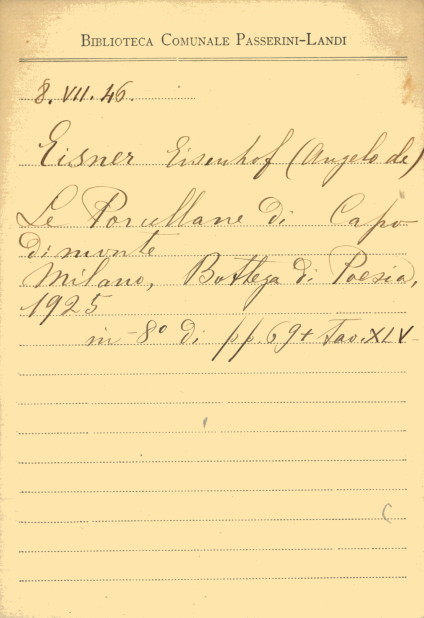 BIBLIOTECA COMUNALE PASSERINI-LANDI
8. VII. 46.
Eisner Eisenhof (Angelo de)
Le Porcellane di Capo
dimonte
Milano, Bottega di Poesia,
1925
in-8° di pp. 69 + Tav. XLV